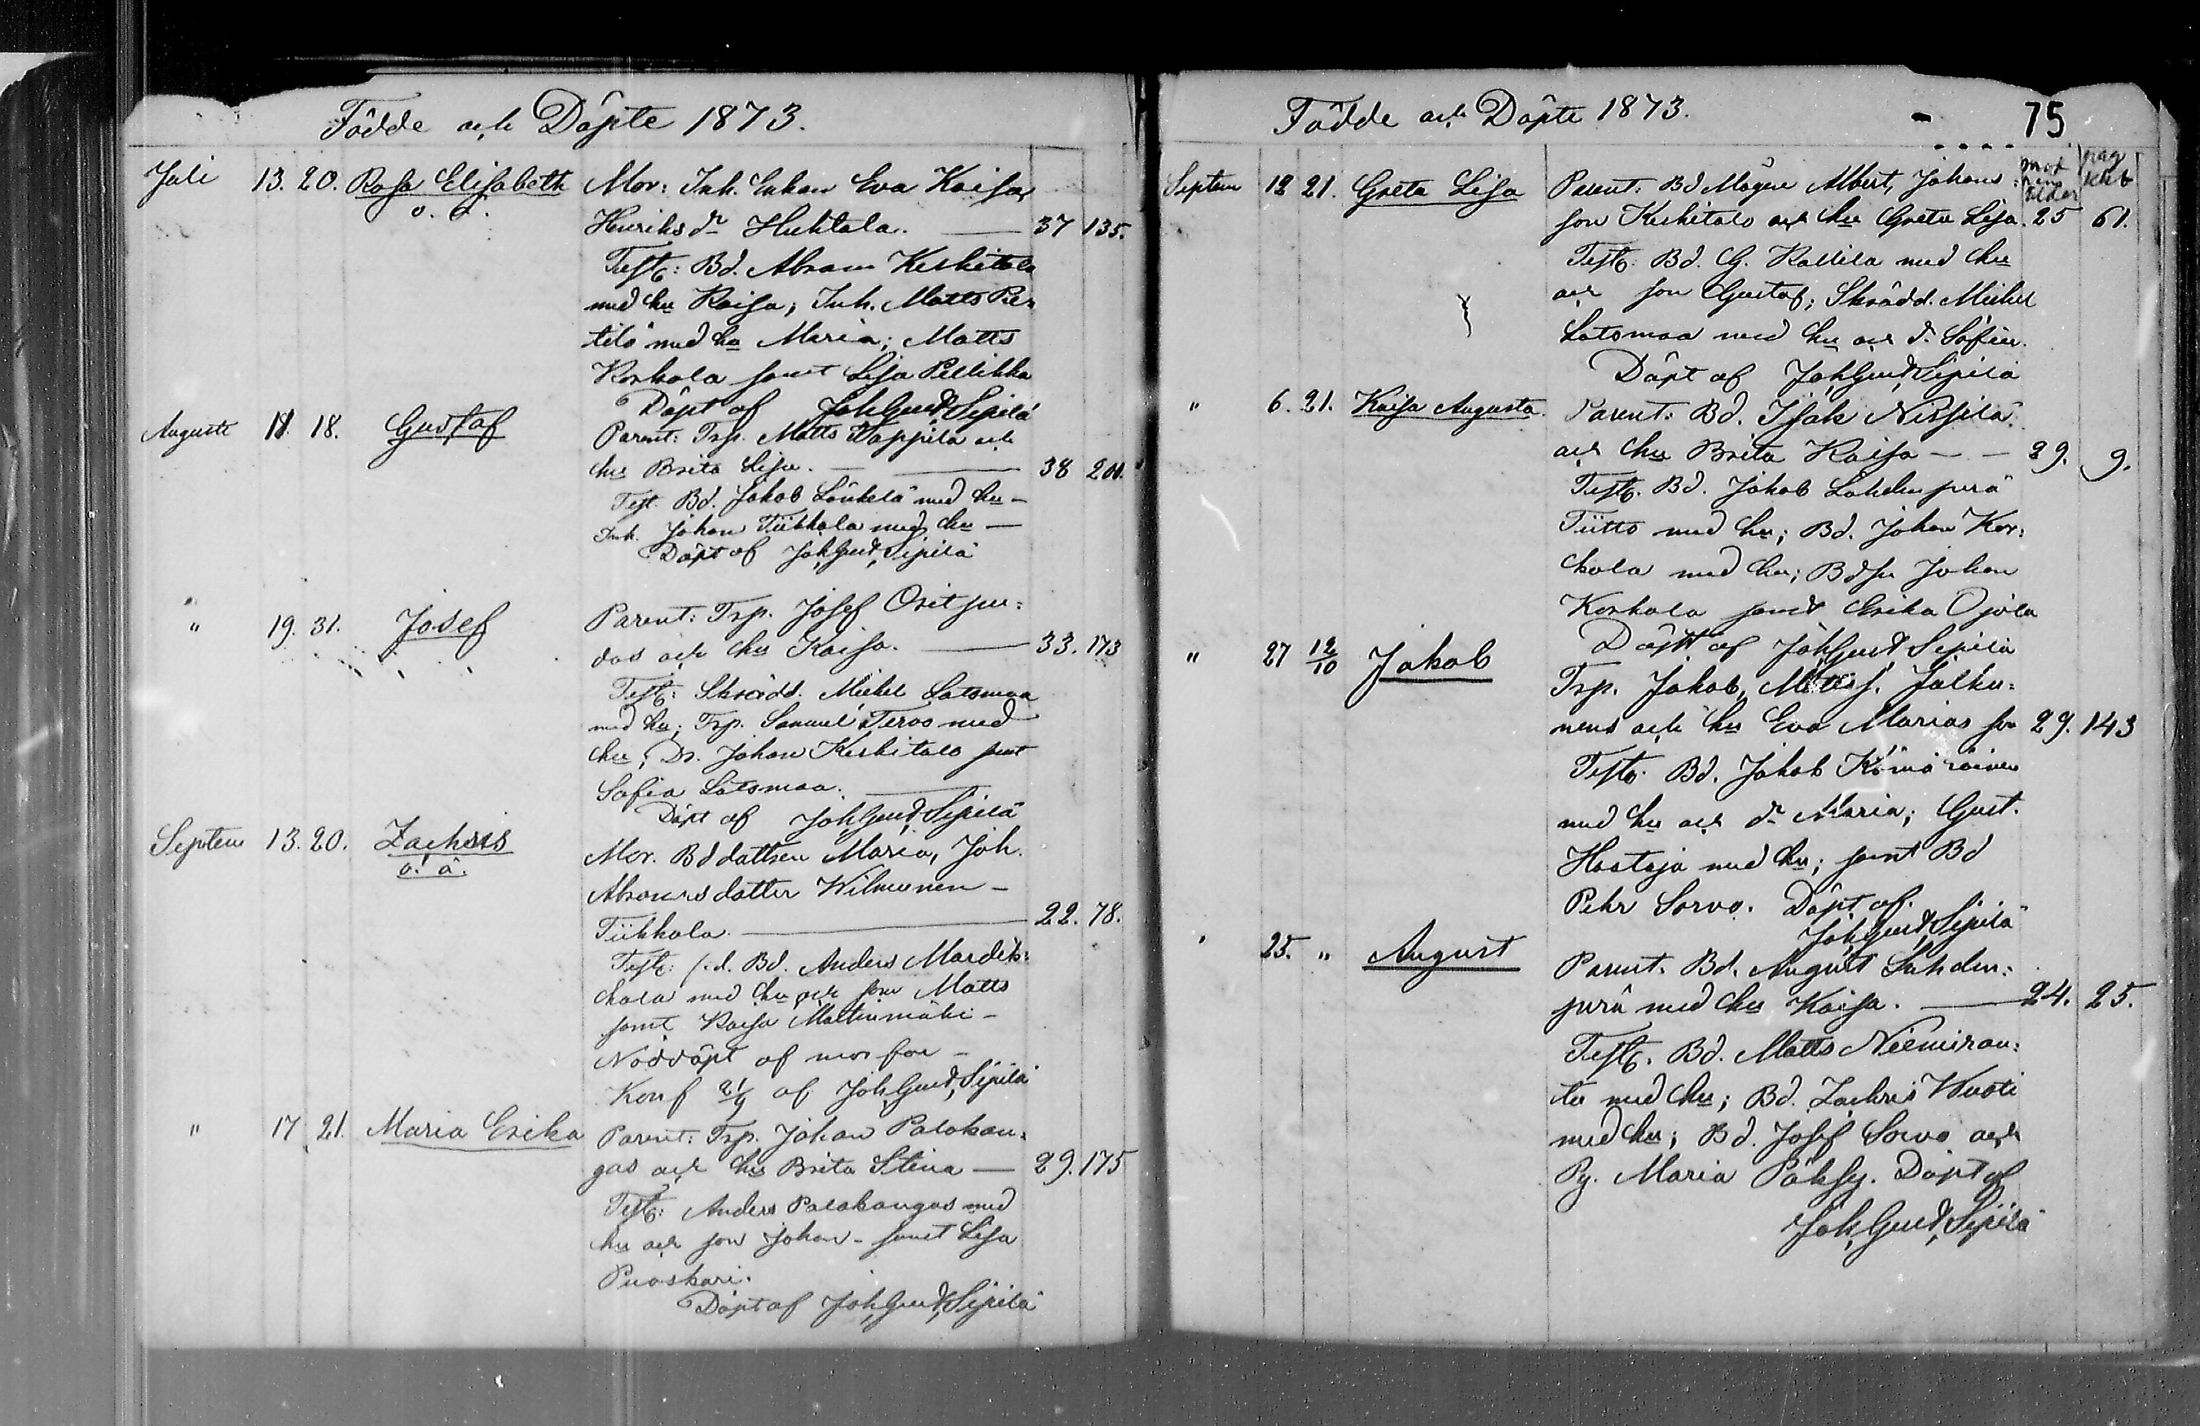 Födde och Döpte 1873.
Juli 13. 20. Rosa Elisabeth Mor: Inh. Enkan Eva Kaisa
o. ä. Henriksdr Huhtala. — 37 135.
Test: Bd. Abram Keskitalo
med hu Kaisa; Inh. Matts Per-
tilä med hu Maria; Matts
Korkala samt Lisa Pellikka
Döpt af Joh. Gust. Sipilä
Augusti 11. 18. Gustaf Parent: Trp. Matts Tappila och
hu Brita Lisa. — 38 201.
Test. Bd. Jakob Länkelä med hu —
Inh. Johan Tiikkala med hu —
Döpt af Joh. Gust. Sipilä
" 19. 31. Josef Parent: Trp. Josef
och hu Kaisa. — 33. 173
Test: Skrädd. Mickel Latomaa
med hu; Trp. Samuel Tervo med
hu; Dr. Johan Keskitalo samt
Sofia Latomaa.
Döpt af Joh. Gust. Sipilä
Septem 13. 20. Zachris Mor. Bd dattren Maria, Joh.
o. ä. Abramsdotter Wilmunen —
Tiikkala. — 22. 78.
Test: f.d. Bd. Anders Mardek:
kala med hu och son Matts
samt Kaisa Mattinmäki —
Nöddöpt af mor far —
Konf 21/9 af Joh. Gust. Sipilä
" 17 21. Maria Erika Parent: Trp. Johan Palokan:
gas och hu Brita Stina — 29. 175
Test: Anders Palokangas med
hu och son Johan — samt Lisa
Puoskari.
Döpt af Joh. Gust. Sipilä
Födde och Döpte 1873. 75
mod rens ålder pag kkb
Septem 12 21. Greta Lisa Parent. Bd Mågen Albert, Johans
son Keskitalo och hu Greta Lisa. 25 61.
Test. Bd. G. Rallila med hu
och son Gustaf; Skrädd. Mickel
Latomaa med hu och dr Sofia.
Döpt af Joh. Gust. Sipilä
" 6. 21. Kaisa Augusta. Parent: Bd. Isak Nissilä
och hu Brita Kaisa — — 39. 9.
Test. Bd. Jakob Lahdenperä
Tiitto med hu; Bd. Johan Kor:
kala med hu; Bdsn Johan
Korkala samt Erika Ojala
Döpt af Joh. Gust. Sipilä
" 27 12/10 Jakob Trp. Jakob, Mattss. Jalku:
nens och hu Eva Marias son 29. 143
Test. Bd. Jakob Kömäräinen
med hu och dr Maria; Gust.
Haataja med hu; samt Bd
Pehr Sorvo. Döpt af.
Joh. Gust. Sipilä
25. " August Parent. Bd. August Lahden:
perä med hu Kaisa. — 24. 25.
Test. Bd. Matts Niemiran:
ta med hu; Bd. Zachris Wuoti
med hu; Bd. Josef Sorvo och
Pg. Maria Döpt af
Joh. Gust. Sipilä